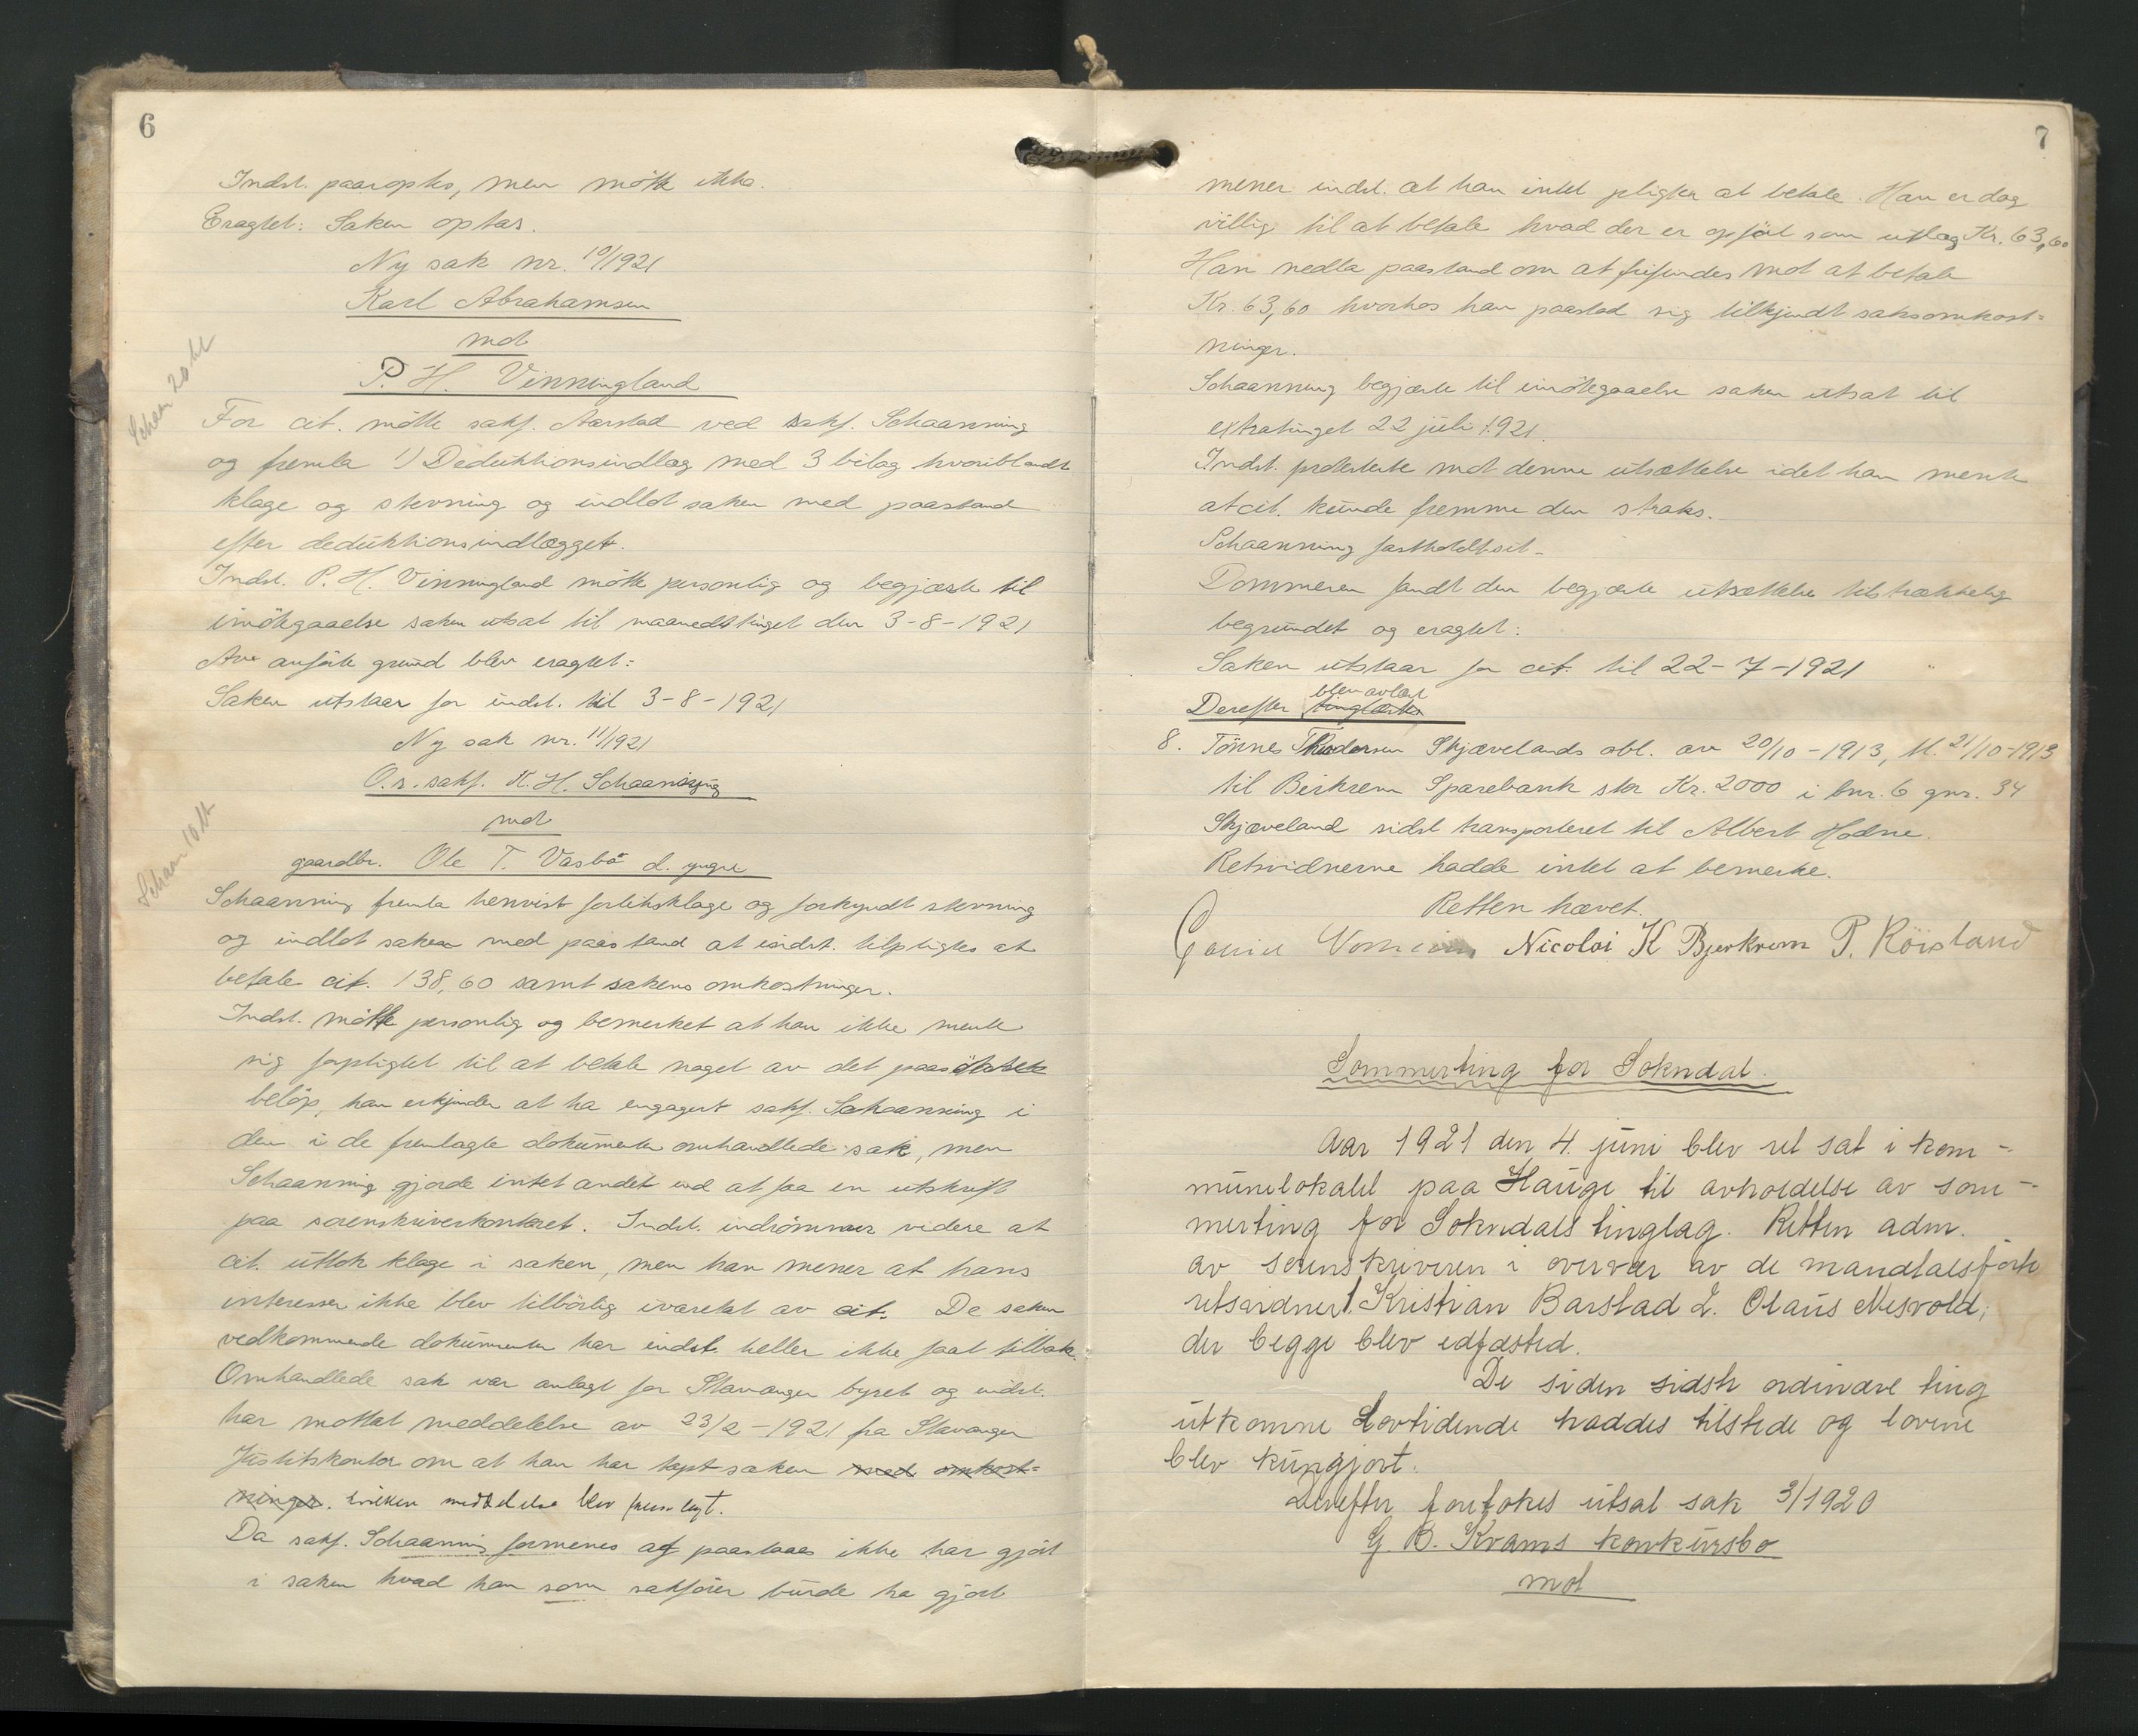 6
Indst. paaroptes, men møtte ikke.
Eragtet: Saken optas.
Ny sak nr. 10/1921
Karl Abrahamsen
mot
P. H. Vinningland
For cit. møtte sakf. Aarstad ved sakf. Schaanning
og fremla 1) Deduktionsindlæg med 3 bilag hvoriblandt
klage og stevning og indlot saken med paastand
efter deduktionsindlægget.
Indst. P. H. Vinningland møtte personlig og begjærte til
imøtegaaelse saken utsat til maanedstinget den 3-8-1921
Av anførte grund blev eragtet:
Saken utstaar for indst. til 3-8-1921
Ny sak nr. 11/1921
O.r.sakf. K. H. Schaanning
mot
gaardbr. Ole T. Vasbø d. yngre
Schaanning fremla henvist forliksklage og forkyndt stevning
og indlot saken med paastand at indst. tilpligtes at
betale cit. 138,60 samt sakens omkostninger.
Indst. møtte personlig og bemerket at han ikke mente
sig forpligtet til at betale noget av det paastevnte
beløp, han erkjender at ha engagert sakf. Schaanning i
den i de fremlagte dokumenter omhandlede sak, men
Schaanning gjorde intet andet end at faa en utskrift
paa sorenskriverkontoret. Indst. indrømmer videre at
cit. uttok klage i saken, men han mener at hans
interesser ikke blev tilbørlig ivaretat av cit. De saken
vedkommende dokumenter har indst. heller ikke faat tilbake.
Omhandlede sak var anlagt for Stavanger byret og indst.
har mottat meddelelse av 23/2-1921 fra Stavanger
Justitskontor om at han har tapt saken med omkost-
ninger. hvilken meddelelse blev fremlagt.
Da sakf. Schaanning formenes at paastaaes ikke har gjort
i saken hvad han som sakfører burde ha gjort
7
mener indst. at han intet pligter at betale. Han er dog
villig til at betale hvad der er opført som utlæg Kr. 63,60
Han nedla paastand om at frifindes mot at betale
Kr. 63,60 hvorhos han paastod sig tilkjendt saksomkost-
ninger.
Schaanning begjærte til imøtegaaelse saken utsat til
extratinget 22 juli 1921.
Indst. protesterte mot denne utsættelse idet han mente
at cit. kunde fremme den straks.
Schaanning fastholdt sit.
Dommeren fandt den begjærte utsættelse tilstrækkelig
begrundet og eragtet:
Saken utstaar for cit. til 22-7-1921
Derefter tinglæstes blev avlæst
8. Tönnes Thodorsen Skjævelands obl. av 20/10-1913, tl. 21/10-1913
til Birkrem Sparebank stor Kr. 2000 i bnr. 6 gnr. 34
Skjæveland sidst transporteret til Albert Hodne.
Retsvidnerne hadde intet at bemerke.
Retten hævet.
Nicolai K Bjerkrem P. Röisland
Sommerting for Sokndal.
Aar 1921 den 4. juni blev ret sat i kom-
munelokalet paa Hauge til avholdelse av som-
merting for Sokndals tinglag. Retten adm.
av sorenskriveren i overvær av de mandtalsførte
retsvidner 1. Kristian Barstad 2. Olaus Mesvold,
der begge blev edfæsted.
De siden sidste ordinære ting
utkomne Lovtidende haddes tilstede og lovene
blev kungjort.
Derefter foretokes utsat sak 3/1920
G. B. Kvams konkursbo
mot